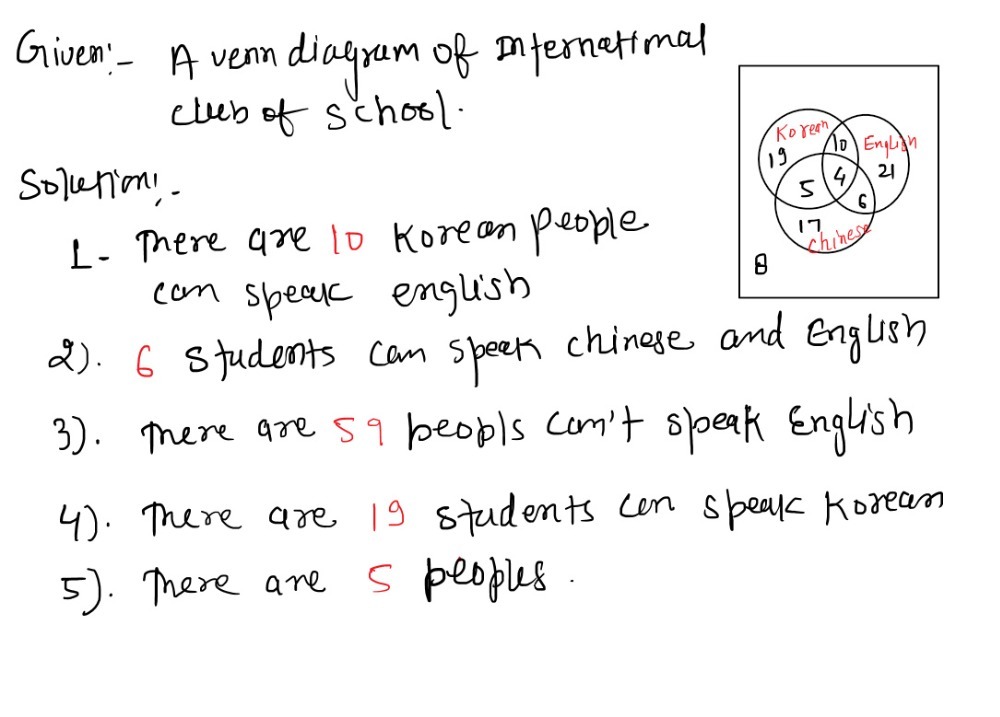 Given:- A venn diagram of International
club of school.
Korean
10
English
19
21
4
5
6
17
Chinese
8
Solution:-
1- There are 10 Korean people
can speak english
2). 6 students can speak chinese and English
3). There are 59 peopls can't speak English
4). There are 19 students can speak Korean
5). There are 5 peoples.